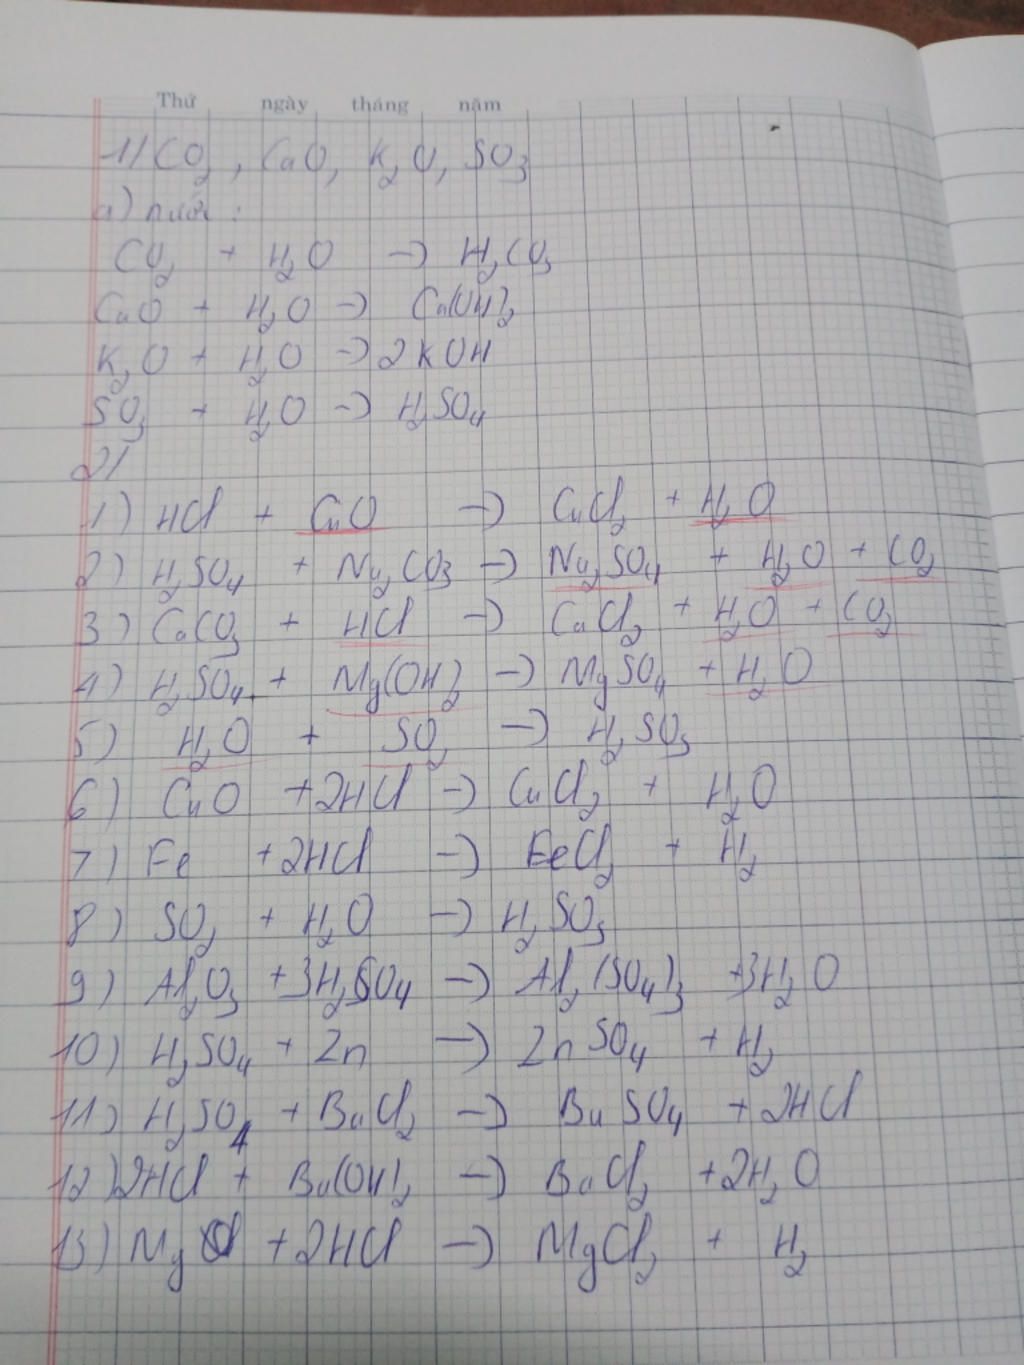 Thứ ngày tháng năm
1/ CO2, CaO, K2O, SO3
a) nước:
CO2 + H2O → H2CO3
CaO + H2O → Ca(OH)2
K2O + H2O → 2KOH
SO3 + H2O → H2SO4
2/
1) HCl + CuO → CuCl2 + H2O
2) H2SO4 + Na2CO3 → Na2SO4 + H2O + CO2
3) CaCO3 + HCl → CaCl2 + H2O + CO2
4) H2SO4 + Mg(OH)2 → MgSO4 + H2O
5) H2O + SO2 → H2SO3
6) CuO + 2HCl → CuCl2 + H2O
7) Fe + 2HCl → FeCl2 + H2
8) SO2 + H2O → H2SO3
9) Al2O3 + 3H2SO4 → Al2(SO4)3 + 3H2O
10) H2SO4 + Zn → ZnSO4 + H2
11) H2SO4 + BaCl2 → BaSO4 + 2HCl
12) 2HCl + Ba(OH)2 → BaCl2 + 2H2O
13) Mg + 2HCl → MgCl2 + H2